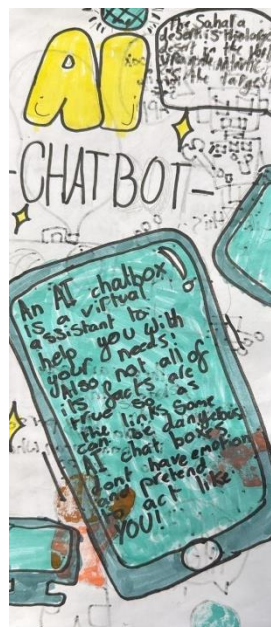 AI
The Sahara
desert is the largest
desert in the
is the largest
-CHATBOT-
An AI chatbox
is a virtual
assistant to
help you with
your needs!
Also not all of
its facts are
true so as
the links some
can be dangerous
AI chat boxes
dont have emotion
and pretend
to act like
YOU!